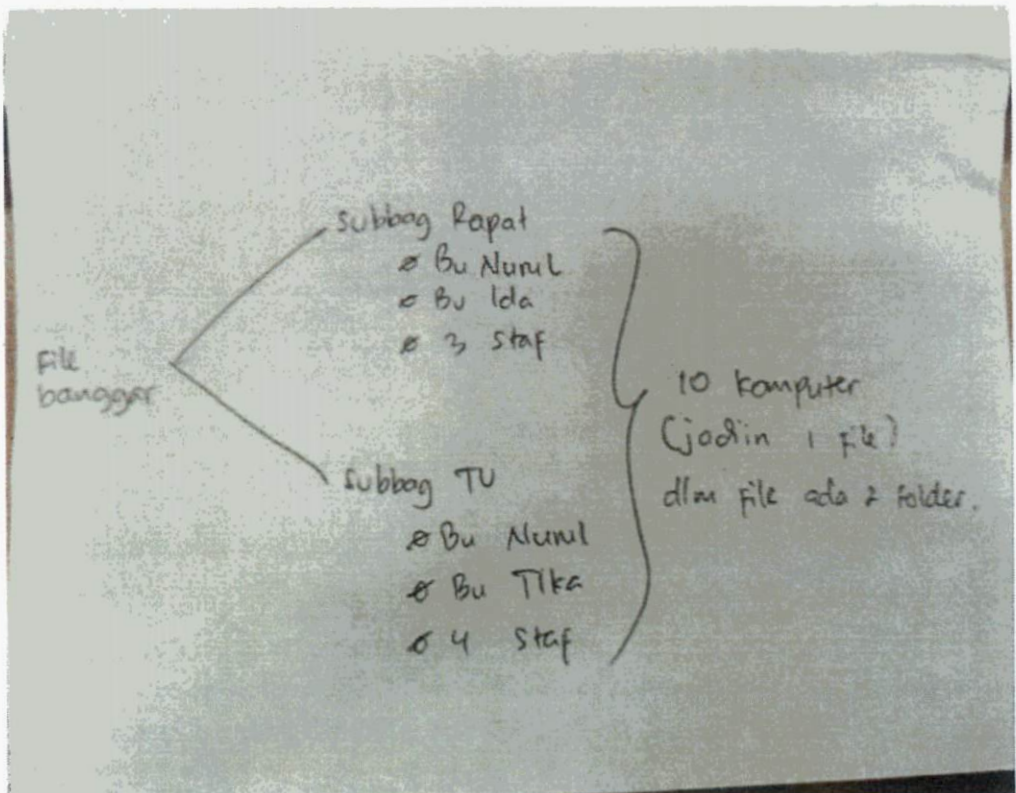 File
banggar
Subbag Rapat
Bu Nurul
Bu Ida
3 Staf
Subbag TU
Bu Nurul
Bu Tika
4 Staf
10 komputer
(jadiin 1 file)
dlm file ada 2 folder.